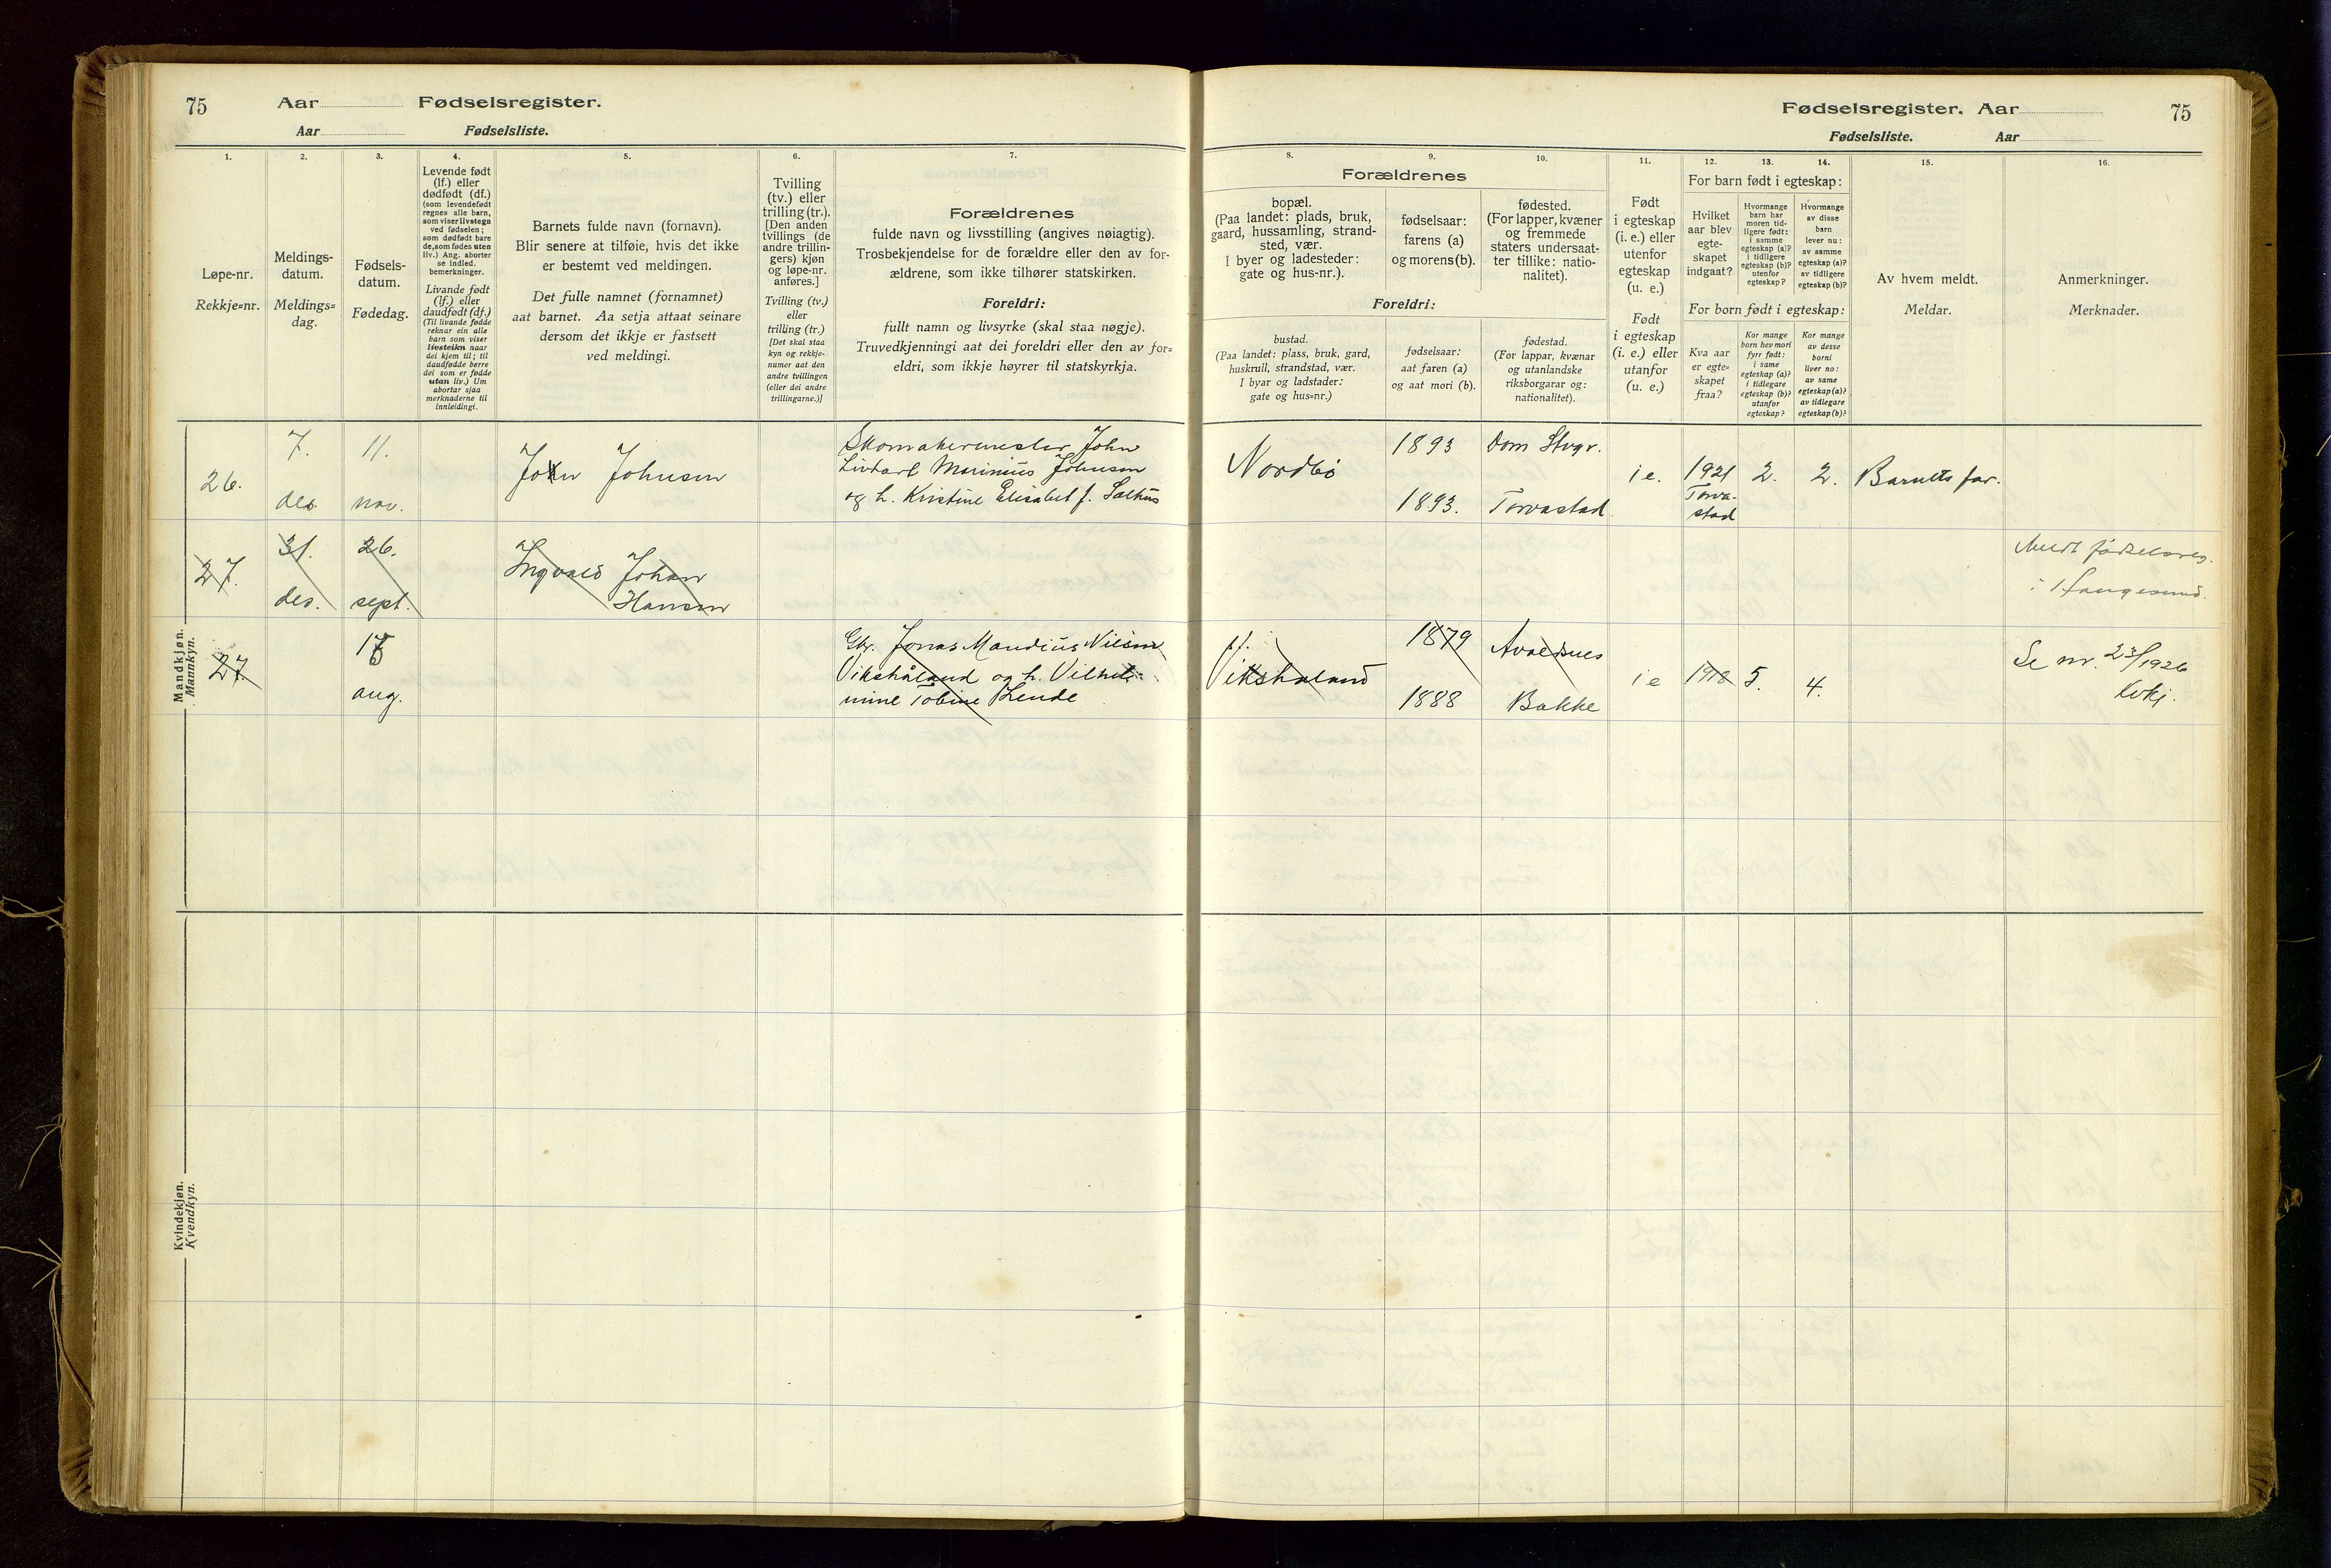 75
Aar
Fødselsregister.
Aar
Fødselsliste.
Fødselsregister. Aar
75
Fødselsliste.
Aar
1.
Løpe-nr.
Rekkje=nr.
2.
Meldings-
datum.
Meldings=
dag.
3.
Fødsels-
datum.
Fødedag.
4.
Levende født
(lf.) eller
dødfødt (df.)
(som levendefødt
regnes alle barn,
som viser livstegn
ved fødselen;
som dødfødt bare
de, som fødes uten
liv.) Ang. aborter
se indled.
bemerkninger.
Livande født
(lf.) eller
daudfødt (df.)
(Til livande fødde
reknar ein alle
barn som viser
livsteikn naar
dei kjem til; til
daudfødde berre
dei som er fødde
utan liv.) Um
abortar sjaa
merknaderne til
innleidingi.
5.
Barnets fulde navn (fornavn).
Blir senere at tilføie, hvis det ikke
er bestemt ved meldingen.
Det fulle namnet (fornamnet)
aat barnet. Aa setja attaat seinare
dersom det ikkje er fastsett
ved meldingi.
6.
Tvilling
(tv.) eller
trilling (tr.).
[Den anden
tvillings (de
andre trillin-
gers) kjøn
og løpe-nr.
anføres.]
Tvilling (tv.)
eller
trilling (tr.)
[Det skal staa
kyn og rekkje-
numer aat den
andre tvillingen
(eller dei andre
trillingarne.)]
7.
Forældrenes
fulde navn og livsstilling (angives nøiagtig).
Trosbekjendelse for de forældre eller den av for-
ældrene, som ikke tilhører statskirken.
Foreldri:
fullt namn og livsyrke (skal staa nøgje).
Truvedkjenningi aat dei foreldri eller den av for=
eldri, som ikkje høyrer til statskyrkja.
Forældrenes
8.
bopæl.
(Paa landet: plads, bruk,
gaard, hussamling, strand-
sted, vær.
I byer og ladesteder:
gate og hus-nr.).
9.
fødselsaar:
farens (a)
og morens (b).
10.
fødested.
(For lapper, kvæner
og fremmede
staters undersaat-
ter tillike: natio-
nalitet).
Foreldri:
bustad.
(Paa landet: plass, bruk, gard,
huskrull, strandstad, vær.
I byar og ladstader:
gate og hus=nr.)
fødselsaar:
aat faren (a)
og aat mori (b).
fødestad.
(For lappar, kvænar
og utanlandske
riksborgarar og:
nationalitet).
11.
Født
i egteskap
(i. e.) eller
utenfor
egteskap
(u. e.)
Født
i egteskap
(i. e.) eller
utanfor
(u. e.)
12. 13. 14.
For barn født i egteskap:
Hvilket
aar blev
egte-
skapet
indgaat?
Hvormange
barn har
moren tid-
ligere født:
i samme
egteskap (a)?
i tidligere
egteskap (b)?
utenfor
egteskap?
Hvormange
av disse
barn
lever nu:
av samme
egteskap (a)?
av tidligere
egteskap (b)?
For born født i egteskap:
Kva aar
er egte=
skapet
fraa?
Kor mange
born hev mori
fyrr født:
i same
egteskap (a)?
i tidlegare
egteskap (b)?
utanfor
egteskap?
Kor mange
av desse
borni
liver no:
av same
egteskap (a)?
av tidlegare
egteskap (b)?
15.
Av hvem meldt.
Meldar.
16.
Anmerkninger.
Merknader.
Mandkjøn.
Mannkyn.
26.
7.
des.
11.
nov.
John Johnsen
Skomakermester John
Marinius Johnsen
og h. Kristine Elisabet f. Salhus
Nordbø
1893
1893.
Dom Stvgr.
Torvastad
i e.
1921
Torva-
stad
2.
2.
Barnets far.
27.
31.
des.
26.
sept.
Ingvald Johan
Hansen
fødselsreg.
i Haugesund.
27.
aug.
Gbr. Jonas Mandius Nilsen
Vikshåland og h. Vilhel-
mine Tobine Lende
Vikshaland
1879
1888
Avaldsnes
Bakke
i e
1918
5.
4.
Se nr. 23/1926
Kvkj.
Kvindekjøn.
Kvendkyn.